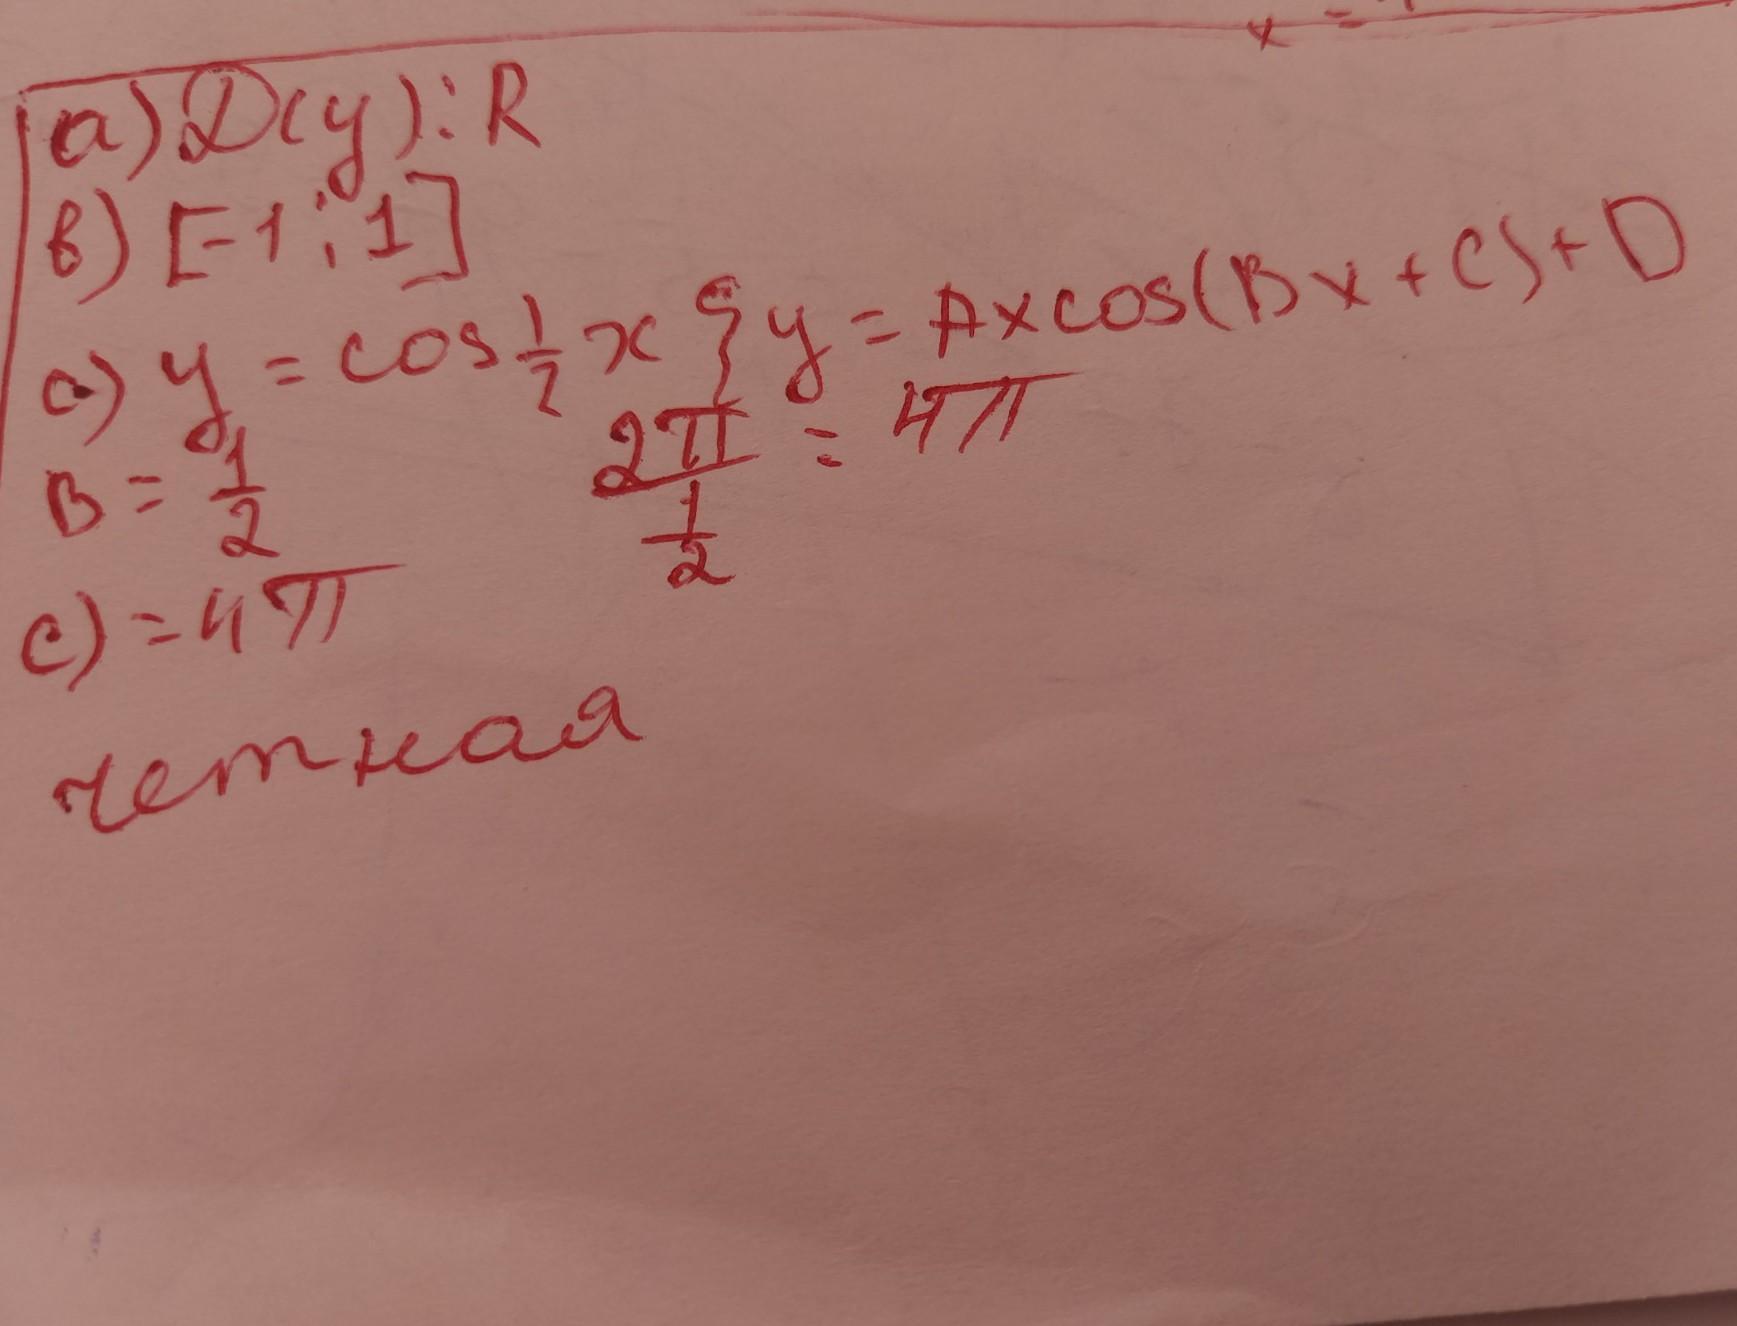 x =
a) D(y): R
в) [-1; 1]
c) y = cos 1/2 x } y = A x cos(Bx + C) + D
B = 1/2    2π / 1/2 = 4π
c) = 4π
четная